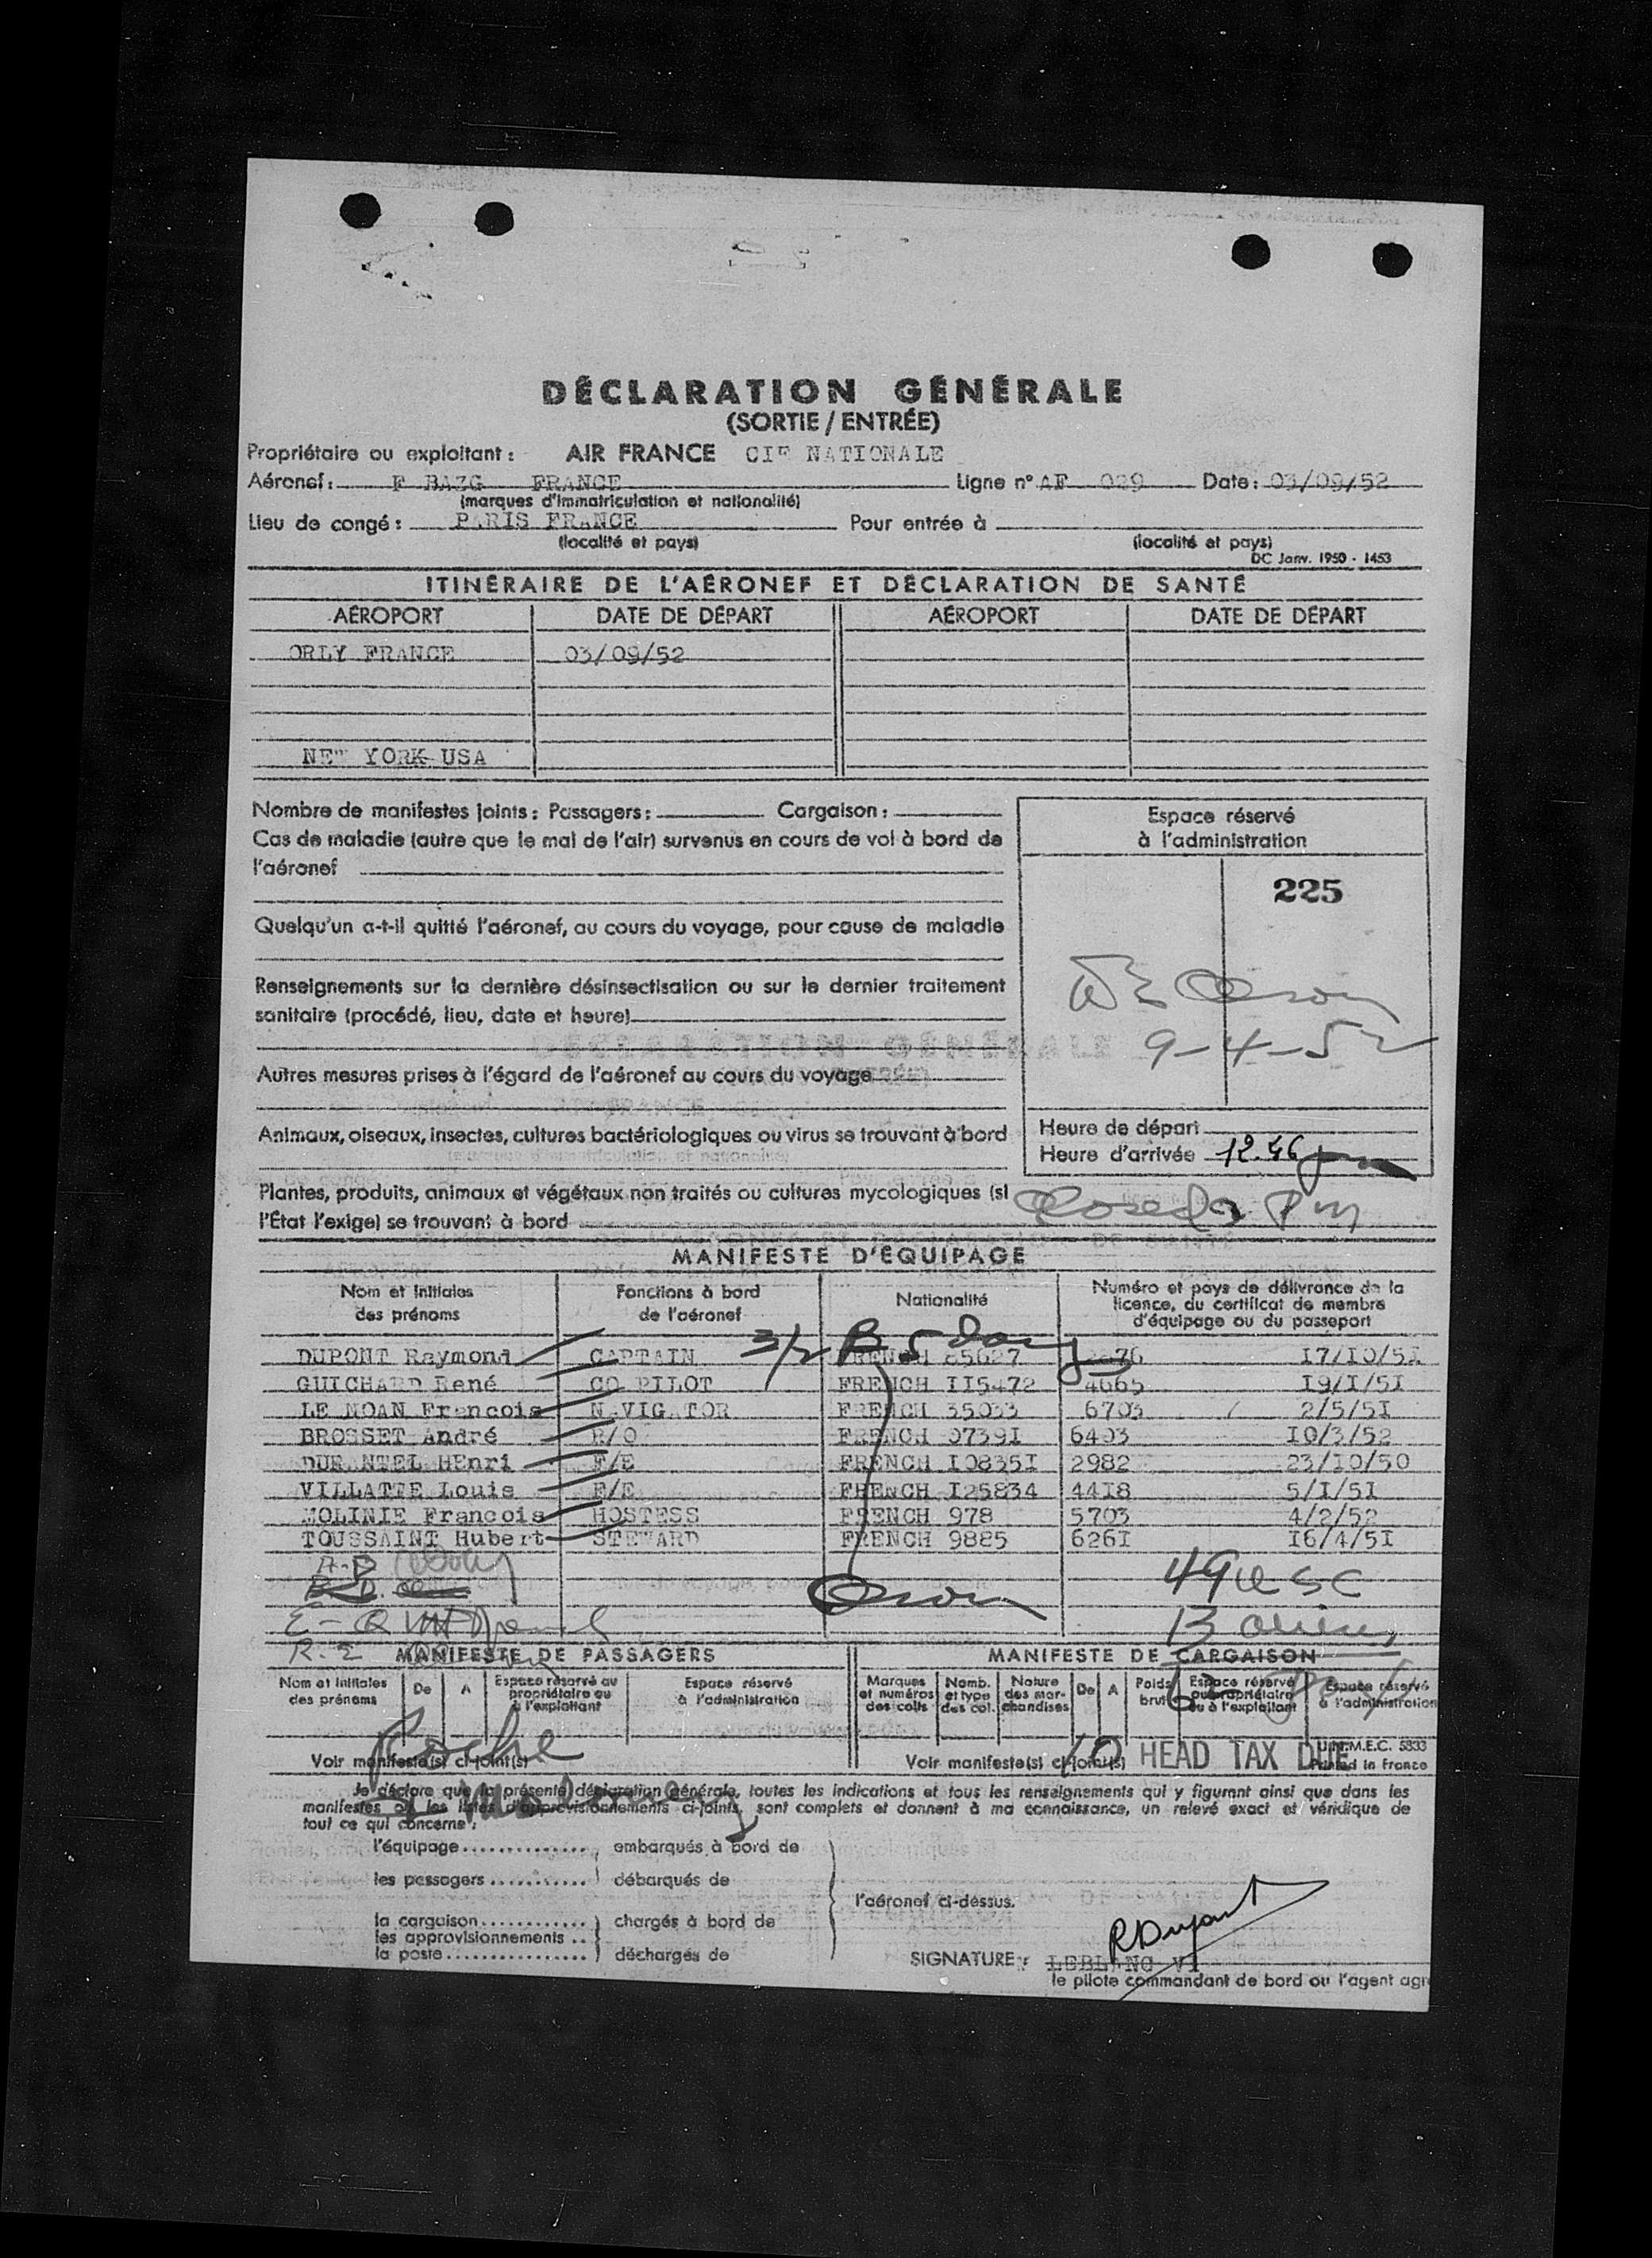 DÉCLARATION GÉNÉRALE
(SORTIE / ENTRÉE)
Propriétaire ou exploitant : AIR FRANCE CIE NATIONALE
Aéronef : F BAZG FRANCE Ligne n° AF 029 Date : 03/09/52
(marques d'immatriculation et nationalité)
Lieu de congé : PARIS FRANCE Pour entrée à
(localité et pays) (localité et pays)
DC Janv. 1950 - 1453
ITINÉRAIRE DE L'AÉRONEF ET DÉCLARATION DE SANTÉ
AÉROPORT DATE DE DÉPART AÉROPORT DATE DE DÉPART
ORLY FRANCE 03/09/52
NEW YORK USA
Nombre de manifestes joints : Passagers : Cargaison :
Cas de maladie (autre que le mal de l'air) survenus en cours de vol à bord de
l'aéronef
Quelqu'un a-t-il quitté l'aéronef, au cours du voyage, pour cause de maladie
Renseignements sur la dernière désinsectisation ou sur le dernier traitement
sanitaire (procédé, lieu, date et heure)
Autres mesures prises à l'égard de l'aéronef au cours du voyage
Animaux, oiseaux, insectes, cultures bactériologiques ou virus se trouvant à bord
Plantes, produits, animaux et végétaux non traités ou cultures mycologiques (si
l'État l'exige) se trouvant à bord
Espace réservé
à l'administration
225
9-4-52
Heure de départ
Heure d'arrivée 12.46 pm
MANIFESTE D'ÉQUIPAGE
Nom et initiales
des prénoms
Fonctions à bord
de l'aéronef
Nationalité
Numéro et pays de délivrance de la
licence, du certificat de membre
d'équipage ou du passeport
3/2 B 5
DUPONT Raymond CAPTAIN FRENCH 85627 17/10/51
GUICHARD René CO PILOT FRENCH II5472 4665 19/I/5I
LE MOAN Francois NAVIGATOR FRENCH 35033 6703 2/5/5I
BROSSET André R/O FRENCH 0739I 6403 I0/3/52
DURANTEL HEnri F/E FRENCH I0835I 2982 23/I0/50
VILLATTE Louis F/E FRENCH I25834 44I8 5/I/5I
MOLINIE Francois HOSTESS FRENCH 978 5703 4/2/52
TOUSSAINT Hubert STEWARD FRENCH 9885 626I I6/4/5I
49 USC
MANIFESTE DE PASSAGERS MANIFESTE DE CARGAISON
Nom et initiales
des prénoms
De A
Espace réservé au
propriétaire ou
à l'exploitant
Espace réservé
à l'administration
Marques
et numéros
des colis
Nomb.
et type
des col.
Nature
des mar-
chandises
De A
Poids
brut
Espace réservé
au propriétaire
ou à l'exploitant
Espace réservé
à l'administration
Voir manifeste(s) ci-joint(s) Voir manifeste(s) ci-joint(s)
HEAD TAX DUE
U.N.M.E.C. 5333
Printed in France
Je déclare que la présente déclaration générale, toutes les indications et tous les renseignements qui y figurent ainsi que dans les
manifestes ou les listes d'approvisionnements ci-joints, sont complets et donnent à ma connaissance, un relevé exact et véridique de
tout ce qui concerne :
l'équipage .............. embarqués à bord de
les passagers ........... débarqués de
l'aéronef ci-dessus.
la cargaison ............ chargés à bord de
les approvisionnements ..
la poste ................ déchargés de
RDupont
SIGNATURE : LEBLANC VI
le pilote commandant de bord ou l'agent agr